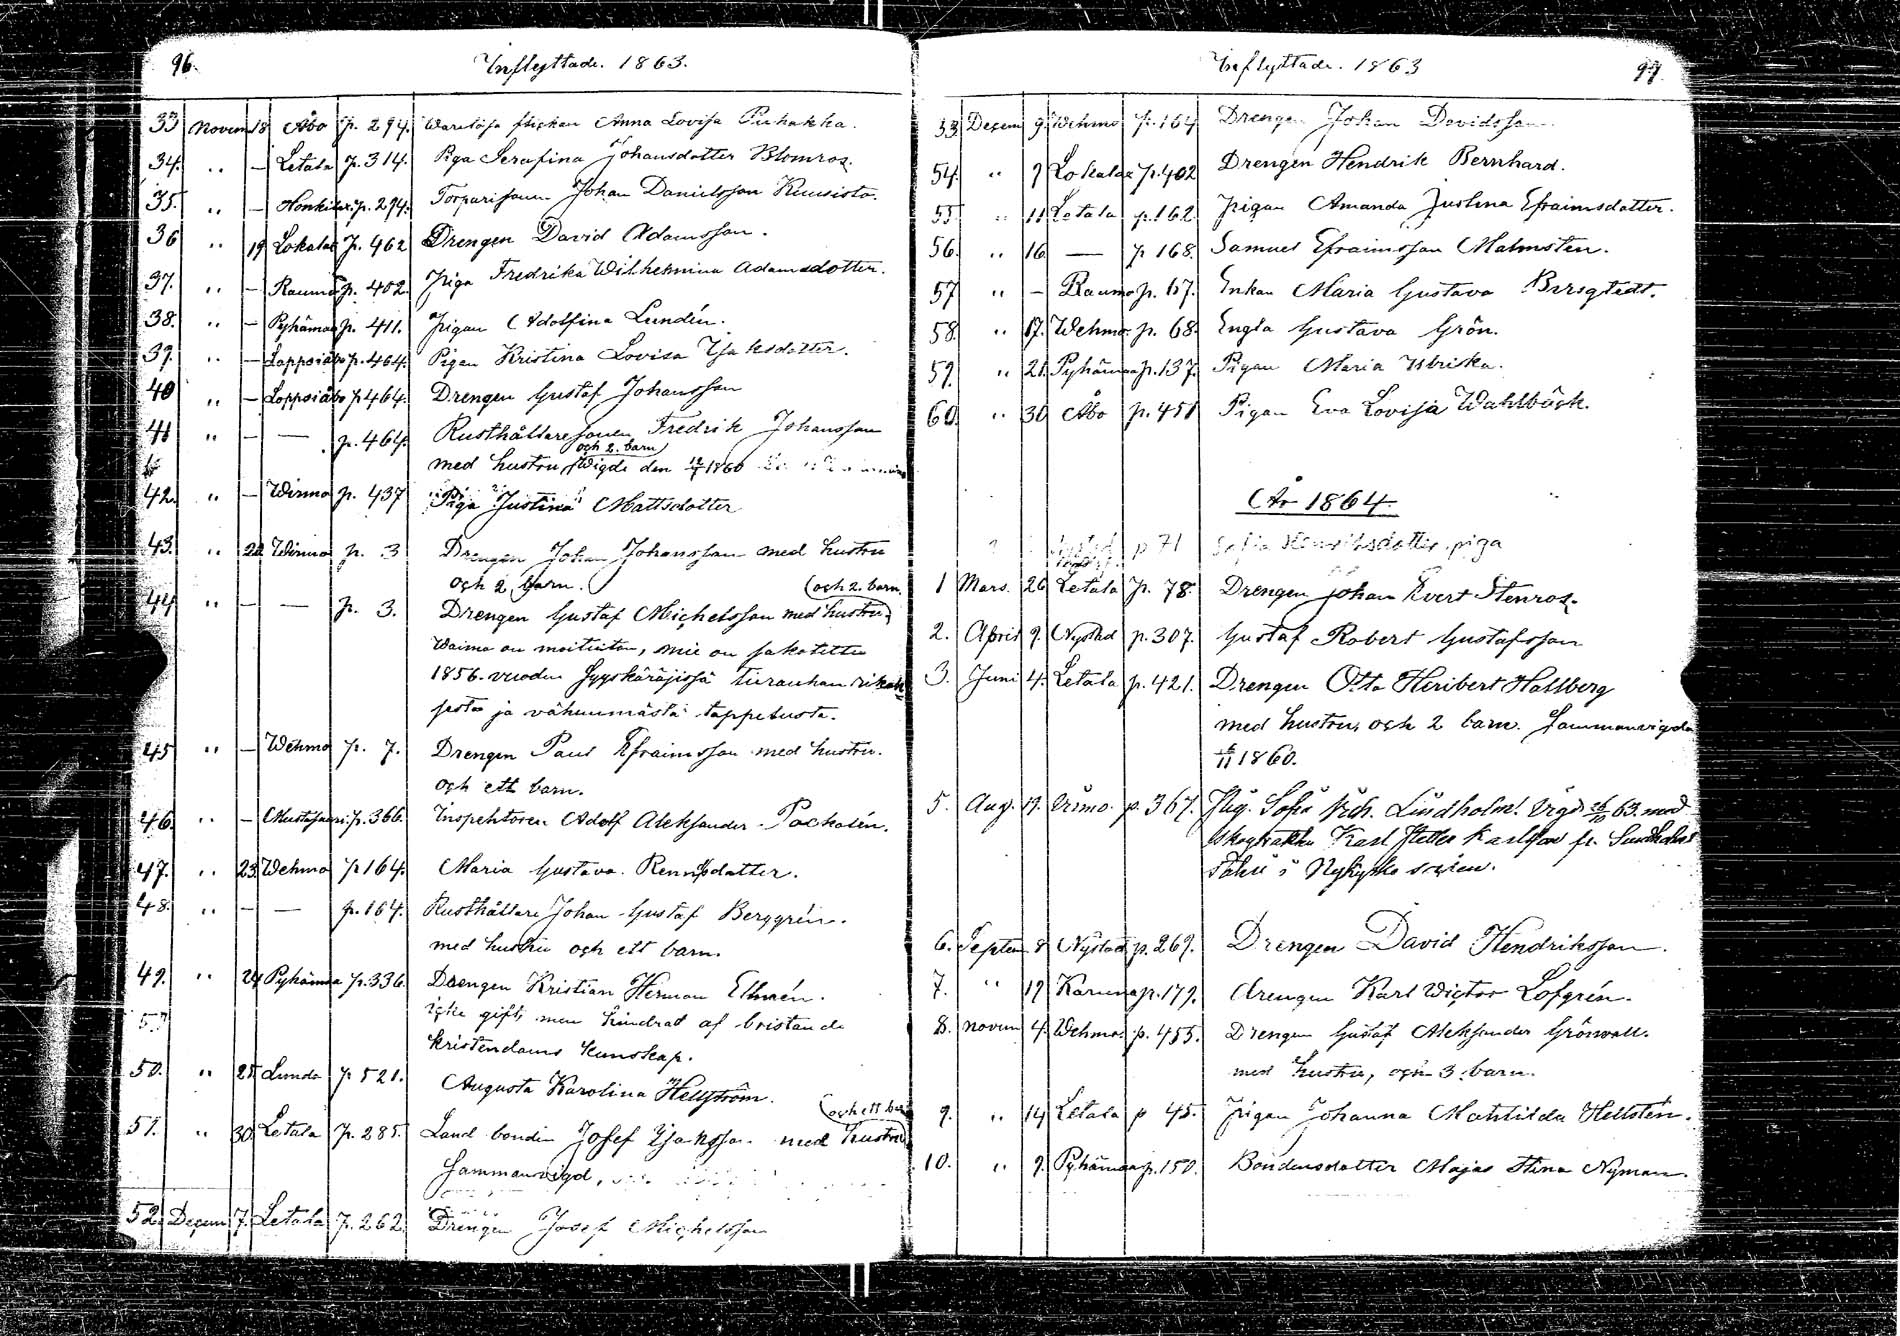 96.
Inflyttade. 1863.
33 Novem 18 Åbo p. 294. Warnlösa flickan Anna Lovisa Puhakka.
34. " — Letala p. 314. Piga Serafina Johansdotter Blomros.
35. " — Honkilax. p. 294. Torparesonen Johan Danielsson Kuusisto.
36 " 19 Lokalax p. 462 Drengen David Adamsson.
37. " — Raumo p. 402. Piga Fredrika Wilhelmina Adamsdotter.
38. " — Pyhämaa p. 411. Pigan Adolfina Lundén.
39. " — Lappoiåbo p. 464. Pigan Kristina Lovisa Isaksdotter.
40 " — Loppoiåbo p 464. Drengen Gustaf Johansson
41 " — — p. 464. Rusthållaresonen Fredrik Johansson
och 2. barn
med hustru Wigde den 12/7 1860
42. " — Wirmo p. 437 Piga Justina Mattsdotter
43. " 22 Wirmo p. 3 Drengen Johan Johansson med hustru
och 2 barn.
och 2. barn.
44 " — — p. 3. Drengen Gustaf Michelsson med hustru
Waimo on moitittu, mie on sakotettu
1856. vuoden Syyskäräjissä turauhan rikok
sesta ja vähemmästä tappelusta.
45 " — Wehmo p. 7. Drengen Paul Efraimsson med hustru.
och ett barn.
46. " — p. 366. Inspektoren Adolf Aleksander Pacholén.
47. " 23. Wehmo p 164. Maria Gustava
48. " — — p. 164. Rusthållare Johan Gustaf Berggrén.
med hustru och ett barn.
49. " 24 Pyhämaa p. 336. Drengen Kristian Herman Ellmén.
icke gift, men hindrad af bristande
kristendoms kunskap.
50. " 25 Lunda p 521. Augusta Karolina Hellström.
och ett bar
51. " 30. Letala p. 285. Land bondin Josef Isaksson med hustru
Sammanvigd,
52. Decem 7. Letala p. 262. Drengen Josef Michelsson
Inflyttade. 1863
97.
53. Decem 9. Wehmo p. 164 Drengen Johan Davidsson
54. " 9 Lokalax p. 402 Drengen Hendrik Bernhard.
55. " 11 Letala p. 162. Pigan Amanda Justina Efraimsdotter.
56. " 16 — p 168. Samuel Efraimsson Malmsten.
57 " — Raumo p. 67. Enkan Maria Gustava
58. " 17. Wehmo p. 68. Engla Gustava Grön.
59. " 21. Pyhämaa p. 137. Pigan Maria Ulrika.
60. " 30 Åbo p. 451 Pigan Eva Lovisa Wahlbäck.
År 1864.
p 71 Sofia Henriksdotter, piga
1 Mars. 26 Letala p. 78. Drengen Johan Evert Stenros.
2. April 9. Nystad p. 307. Gustaf Robert Gustafsson
3. Juni 4. Letala p. 421. Drengen Otto Heribert Hallberg
med hustru, och 2 barn. Sammanvigda
4/11 1860.
5. Aug. 19. Virmo. p. 367. Sofia Lindholm! Vigd 26/10 63. med
Karl Karlsson fr.
i Nykyrko socken.
6. Septem 8 Nystad p. 269. Drengen David Hendriksson.
7. " 19 Karuna p. 179. Drengen Karl Wictor Löfgrén.
8. Novem 4. Wehmo. p. 455. Drengen Gustaf Aleksander Grönvall.
med hustru, och 3. barn.
9. " 14 Letala p 45. Pigan Johanna Mathilda Hellstén.
10. " 9. Pyhämaa p. 150. Bondensdotter Majas Stina Nyman.